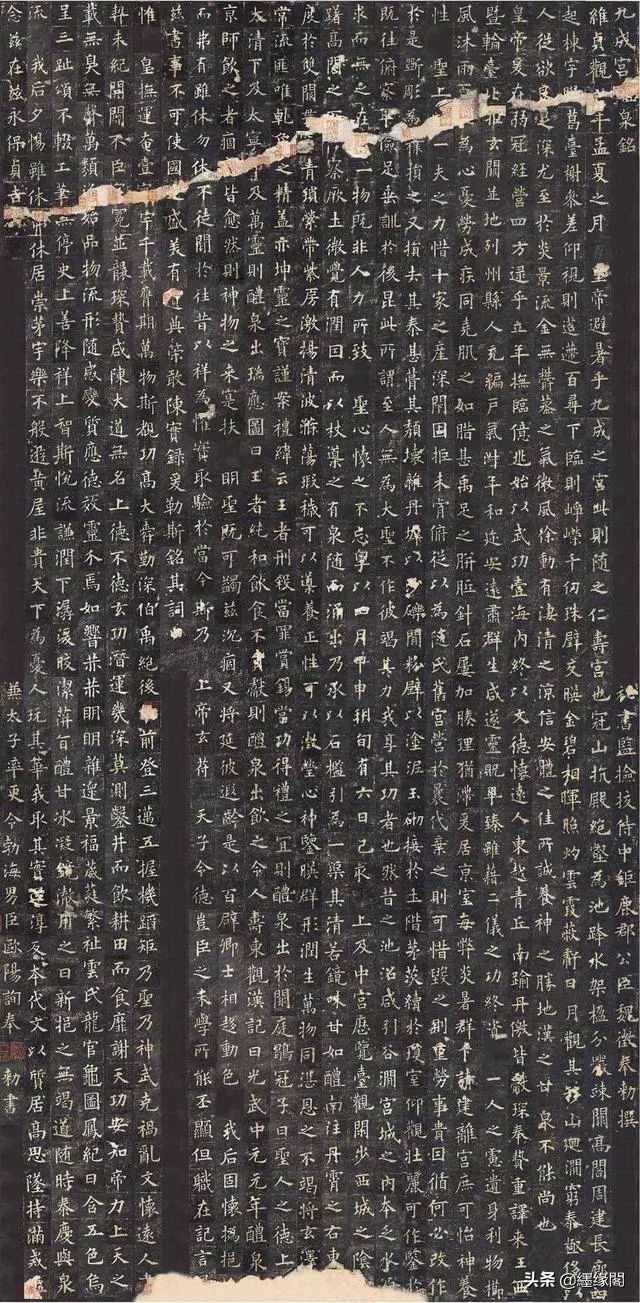 九成宮泉銘 秘書監撿挍侍中鉅鹿郡公臣魏徵奉勑撰
維貞觀年孟夏之月 皇帝避暑乎九成之宮此則隨之仁壽宮也冠山抗殿絕壑為池跨水架楹分巖竦闕高閣周建長廊四
起棟宇膠葛臺榭參差仰視則迢遰百尋下臨則崢嶸千仞珠璧交暎金碧相暉照灼雲霞蔽虧日月觀其移山迴澗窮泰極侈以
人從欲良足深尤至於炎景流金無鬱蒸之氣微風徐動有淒清之涼信安體之佳所誠養神之勝地漢之甘泉不能尚也
皇帝爰在弱冠經營四方逮乎立年撫臨億兆始以武功壹海內終以文德懷遠人東越青丘南踰丹儌皆獻琛奉贄重譯來王西
暨輪臺北拒玄闕並地列州縣人充編戶氣淑年和迩安遠肅群生咸遂靈貺畢臻雖藉二儀之功終資 一人之慮遺身利物櫛
風沐雨為心憂勞成疾同堯肌之如腊甚禹足之胼胝針石屢加腠理猶滯爰居京室每弊炎暑群下請建離宮庶可怡神養
性 聖上一夫之力惜十家之產深閉固拒未肯俯從以為隨氏舊宮營於曩代棄之則可惜毀之則重勞事貴因循何必改作
於是斲彫為樸損之又損去其泰甚葺其頹壞雜丹墀以沙礫間粉壁以塗泥玉砌接於土階茅茨續於瓊室仰觀壯麗可作鑒於
既往俯察卑儉足垂訓於後昆此所謂至人無為大聖不作彼竭其力我享其功者也然昔之池沼咸引谷澗宮城之內本乏水源
求而無之在一物既非人力所致 聖心懷之不忘粵以四月甲申朔旬有六日己亥 上及中宮歷覽臺觀閑步西城之陰
躇高閣之下察厥土微覺有潤因而以杖導之有泉隨而涌出乃承以石檻引為一渠其清若鏡味甘如醴南注丹霄之右東
度於雙闕青瑣縈帶紫房激揚清波滌蕩瑕穢可以導養正性可以澂瑩心神鑒暎群形潤生萬物同湛恩之不竭將玄澤
常流匪唯乾之精蓋亦坤靈之寶謹案禮緯云王者刑殺當罪賞錫當功得禮之宜則醴泉出於闕庭鶡冠子曰聖人之德上
太清下及太寧中及萬靈則醴泉出瑞應圖曰王者純和飲食不貢獻則醴泉出飲之令人壽東觀漢記曰光武中元元年醴泉
京師飲之者痼皆愈然則神物之來寔扶 明聖既可蠲茲沉痼又將延彼遐齡是以百辟卿士相趨動色 我后固懷撝挹
而弗有雖休勿休不徒聞於往昔以祥為懼實取驗於當今斯乃 上帝玄符 天子令德豈臣之末學所能丕顯但職在記言
茲書事不可使國之盛美有遺典策敢陳實錄爰勒斯銘其詞曰
惟 皇撫運奄壹寰宇千載膺期萬物斯覩功高大舜勤深伯禹絕後前登三邁五握機蹈矩乃聖乃神武克禍亂文懷遠人書
契未紀開闢不臣冠冕並襲琛贄咸陳大道無名上德不德玄功潛運幾深莫測鑿井而飲耕田而食靡謝天功安知帝力上天之
載無臭無聲萬類資始品物流形隨感變質應德效靈介焉如響赫赫明明雜遝景福葳蕤繁祉雲氏龍官龜圖鳳紀日含五色烏
呈三趾頌不輟工筆無停史上善降祥上智斯悅流謙潤下潺湲皎潔蓱旨醴甘冰凝鏡澈用之日新挹之無竭道隨時泰慶與泉
流 我后夕惕雖休弗休居崇茅宇樂不般遊黃屋非貴天下為憂人玩其華我取其實還淳反本代文以質居高思墜持滿戒溢
念茲在茲永保貞吉 兼太子率更令勃海男臣歐陽詢奉 勑書
头条 @經缘閣